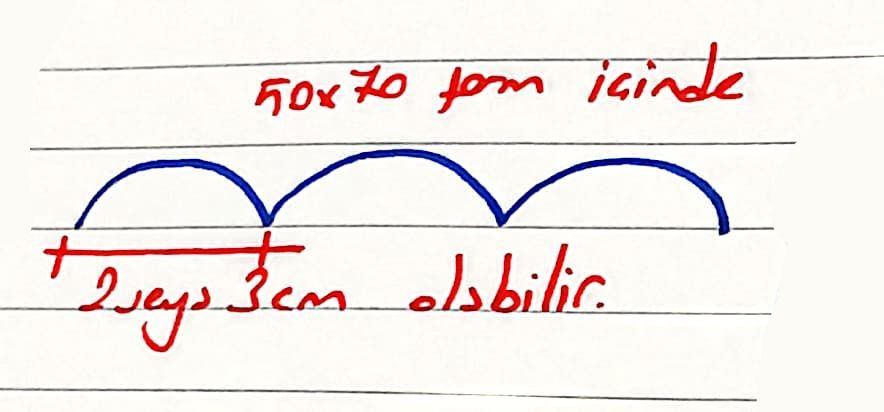 50x70 form içinde
2 veya 3 cm olabilir.